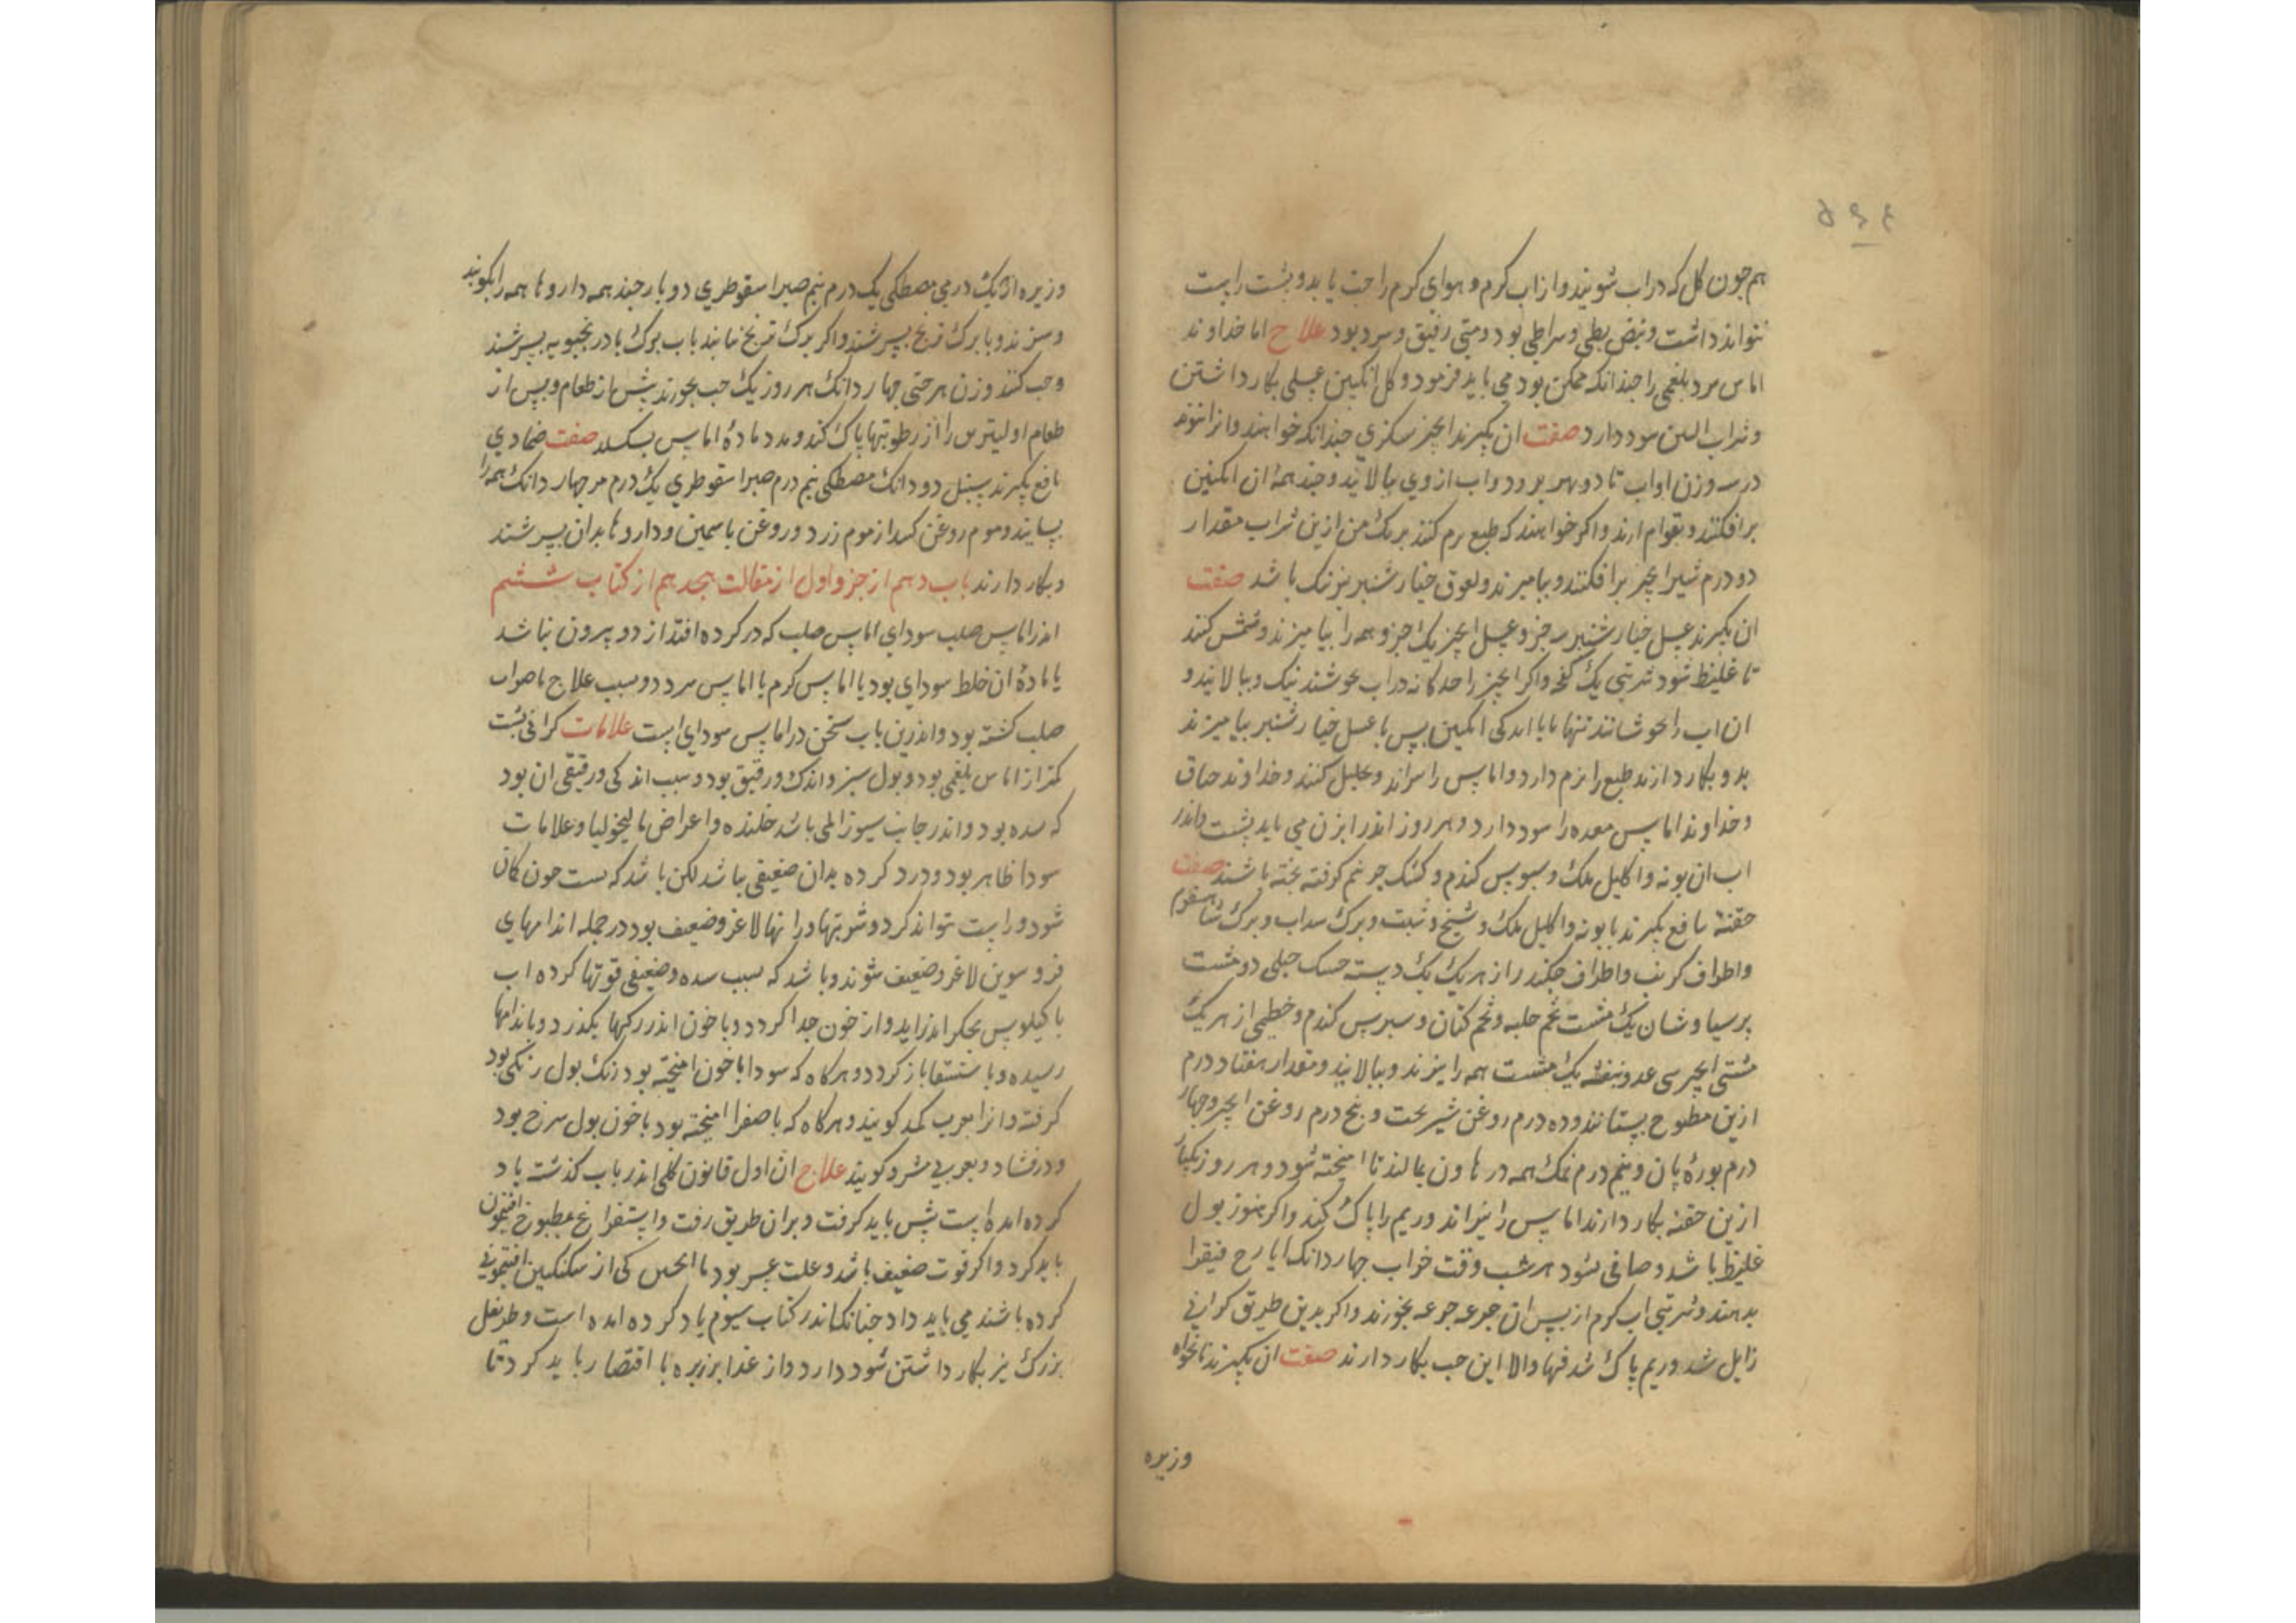 هم جون کل که در اب شویند و از اب کرم و هوای کرم راحت یابد و پشت راست
نتواند داشت و نبض بطی و بود و منی رقیق و سرد بود علاج اما خداوند
اماس سرد بلغمی را جندانکه ممکن بود می باید فرمود و کل انکبین عسلی بکار داشتن
و شراب سود دارد صفت ان بکیرند انجیر جندانکه خواهند و انرا
در سه وزن او اب تا دو بهر برود و اب از وی ببالایند و جند همه ان انکبین
برافکنند و بقوام ارند و اکر خواهند که طبع نرم کند بر یک من ازین شراب مقدار
دو درم شیر انجیر برافکنند و بیامیزند و لعوق خیارشنبر نیز نیک باشد صفت
ان بکیرند عسل خیارشنبر سه جزو عسل انجیر یک جزو همه را بیامیزند و کنند
تا غلیظ شود شربتی یک کفجه و اکر انجیر را جداکانه در اب بجوشند نیک و ببالایند و
ان اب را بجوشانند تنها یا با اندکی انکبین پس با عسل خیارشنبر بیامیزند
بد و بکار دارند طبع را نرم دارد و اماس را بپزاند و تحلیل کنند و خداوند خناق
و خداوند اماس معده را سود دارد و هر روز اندر ابزن می باید نشست و اندر
اب ان بابونه و اکلیل ملک و سبوس کندم و کشک جو نیم کوفته بخته باشند صفت
حقنه نافع بکیرند بابونه و اکلیل ملک و شیح و شبت و برک سداب و برک
و اطراف کرنب و اطراف جکندر از هر یک یک دسته حسک جبلی دو مشت
پرسیاوشان یک مشت تخم حلبه و تخم کتان و سبوس کندم و خطمی از هر یک
مشتی انجیر سی عدد بنفشه یک مشت همه را بپزند و ببالایند و مقدار هفتاد درم
ازین مطبوخ بستانند و ده درم روغن شیربخت و پنج درم روغن انجیر و جهار
درم بوره نان و نیم درم نمک همه در هاون بمالند تا امیخته شود و هر روز یکبار
ازین حقنه بکار دارند اماس را بپزاند و ریم را پاک کند و اکر هنوز بول
غلیظ باشد و صافی نشود هر شب وقت خواب جهار دانک ایارح فیقرا
بدهند و شربتی اب کرم از پس ان جرعه جرعه بخورند و اکر بدین طریق کرانی
زایل شد و ریم پاک شد فبها و الا این حب بکار دارند صفت ان بکیرند نانخواه
وزیره
وزیره از یک درمی مصطکی یک درم نیم صبر اسقوطری دو بار جند همه داروها همه را بکوبند
و بپزند و با برک ترنج بسرشند و اکر برک ترنج نیابند باب برک بادرنجبویه بسرشند
و حب کنند وزن هر حبی جهار دانک هر روز یک حب بخورند پیش از طعام و پس از
طعام اولیتر بس را از رطوبتها پاک کند و مدد ماده اماس بکسلد صفت ضمادی
نافع بکیرند سنبل دو دانک مصطکی نیم درم صبر اسقوطری یک درم مر جهار دانک همه را
بسایند و موم روغن کنند از موم زرد و روغن یاسمین و داروها بدان بسرشند
و بکار دارند باب دهم از جزو اول از مقالت هجدهم از کتاب ششم
اندر اماس صلب سودای اماس صلب که در کرده افتد از دو بیرون نباشد
یا ماده ان خلط سودای بود یا اماس کرم یا اماس سرد و سبب علاج ناصواب
صلب کشته بود و اندرین باب سخن در اماس سودای است علامات کرانی پشت
کمتر از اماس بلغمی بود و بول سبز و اندک و رقیق بود و سبب اندکی و رقیقی ان بود
که سده بود و اندر جانب سپرز المی باشد خلنده و اعراض مالیخولیا و علامات
سودا ظاهر بود و درد کرده بدان ضعیفی باشد لکن باشد که پشت جون کمان
شود و راست نتواند کرد و سرینها و رانها لاغر و ضعیف بود در جمله اندامهای
فروسوین لاغر و ضعیف شوند و باشد که بسبب سده و ضعیفی قوتها کرده اب
با کیلوس بجکر اندر اید و از خون جدا کردد و با خون اندر رکها بکذرد و باندامها
رسیده و باستسقا باز کردد و هرکاه که سودا با خون امیخته بود رنک بول رنکی بود
کرفته و انرا بعرب کمد کویند و هرکاه که با صفرا امیخته بود با خون بول سرخ بود
و درفشان و بعربی مشرق کویند علاج ان اول قانون کلی اندر باب کذشته یاد
کرده امده است پیش باید کرفت و بران طریق رفت و استفراغ بمطبوخ افتیمون
باید کرد و اکر قوت ضعیف باشد و علت عسر بود ماالجبن کی از سکنکبین افتیمونی
کرده باشند می باید داد جنانک اندر کتاب سیوم یاد کرده امده است و طریفل
بزرک نیز بکار داشتن سود دارد و از غذا بر زیره با اقتصار باید کرد تا